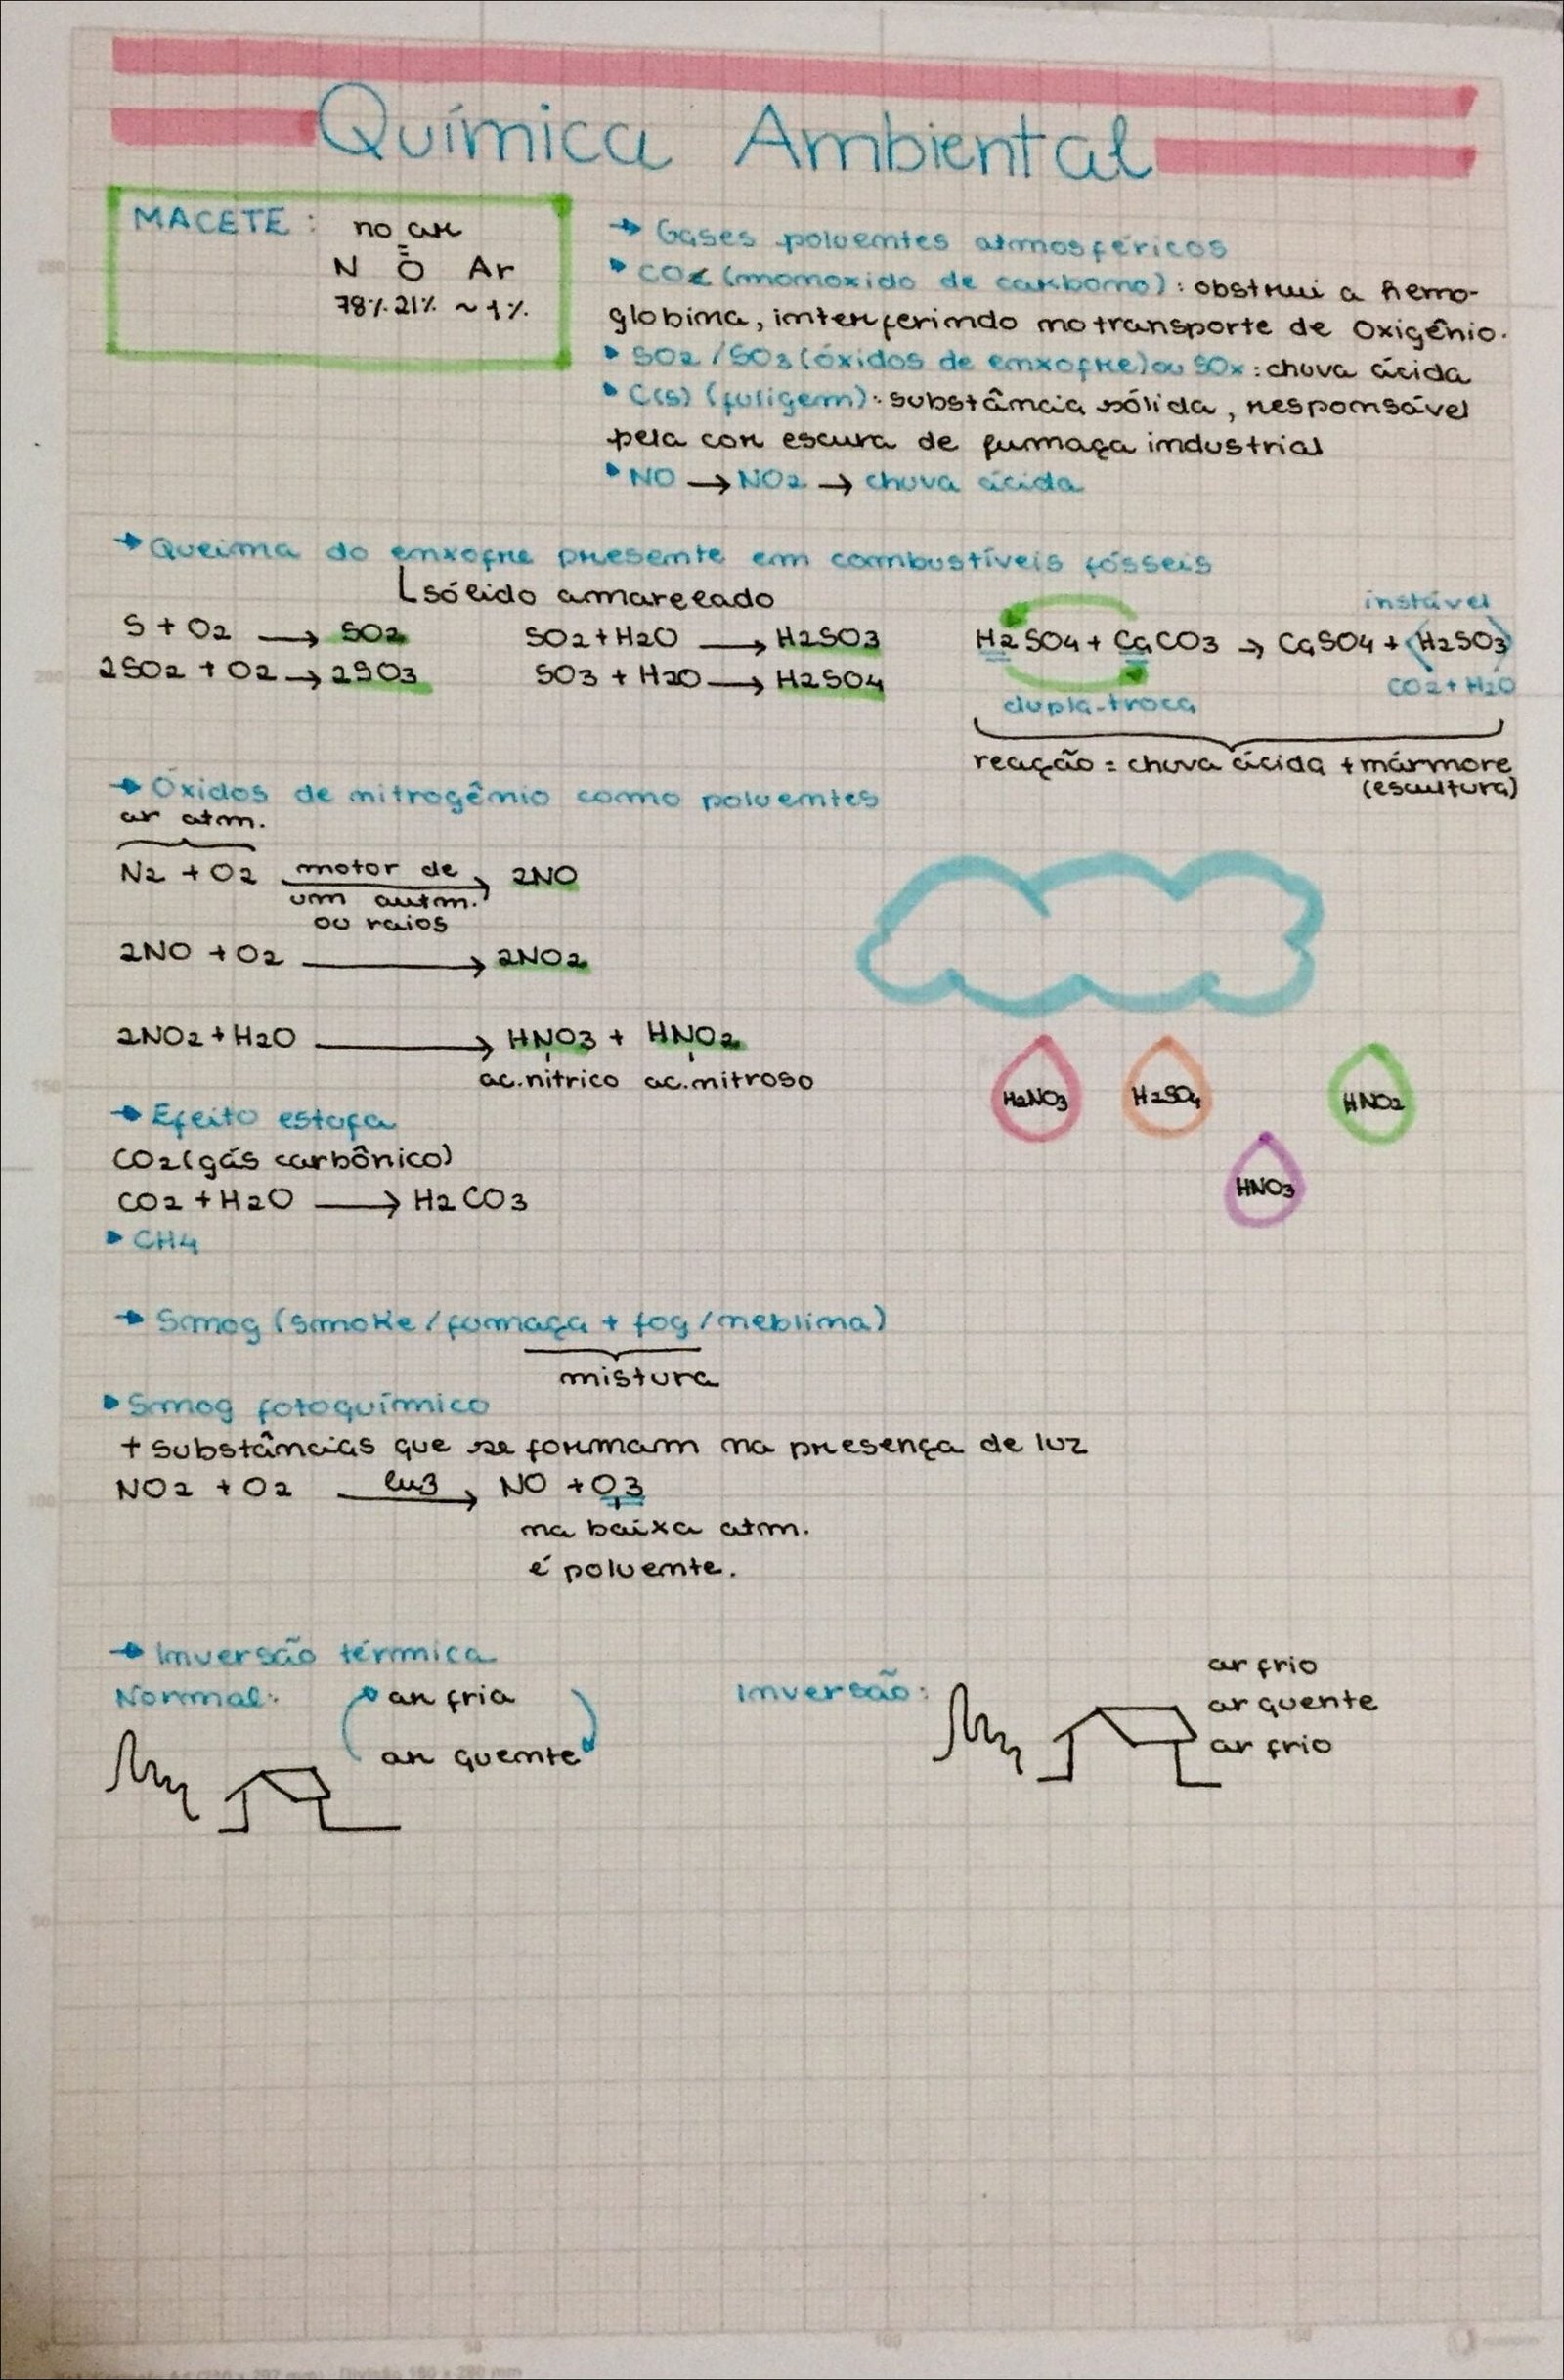 Química Ambiental
MACETE: no ar
N O Ar
78% 21% ~1%
→ Gases poluentes atmosféricos
CO (monoxido de carbono): obstrui a hemo-
globina, interferindo no transporte de Oxigênio.
SO2/SO3 (óxidos de enxofre) ou SOx: chuva ácida
C(s) (fuligem): substância sólida, responsável
pela cor escura de fumaça industrial
NO → NO2 → chuva ácida
→ Queima do enxofre presente em combustíveis fósseis
sólido amarelado
S + O2 → SO2
2SO2 + O2 → 2SO3
SO2 + H2O → H2SO3
SO3 + H2O → H2SO4
instável
H2SO4 + CaCO3 → CaSO4 + H2SO3
CO2 + H2O
dupla-troca
reação = chuva ácida + mármore
(escultura)
→ Óxidos de nitrogênio como poluentes
ar atm.
N2 + O2 motor de → 2NO
um autm.
ou raios
2NO + O2 → 2NO2
2NO2 + H2O → HNO3 + HNO2
ac. nítrico ac. nitroso
H2NO3 H2SO4 HNO2
HNO3
→ Efeito estufa
CO2 (gás carbônico)
CO2 + H2O → H2CO3
CH4
→ Smog (smoke/fumaça + fog/neblina)
mistura
Smog fotoquímico
+ substâncias que se formam na presença de luz
NO2 + O2 luz → NO + O3
na baixa atm.
é poluente.
→ Inversão térmica
Normal: ar fria
ar quente
Inversão: ar frio
ar quente
ar frio